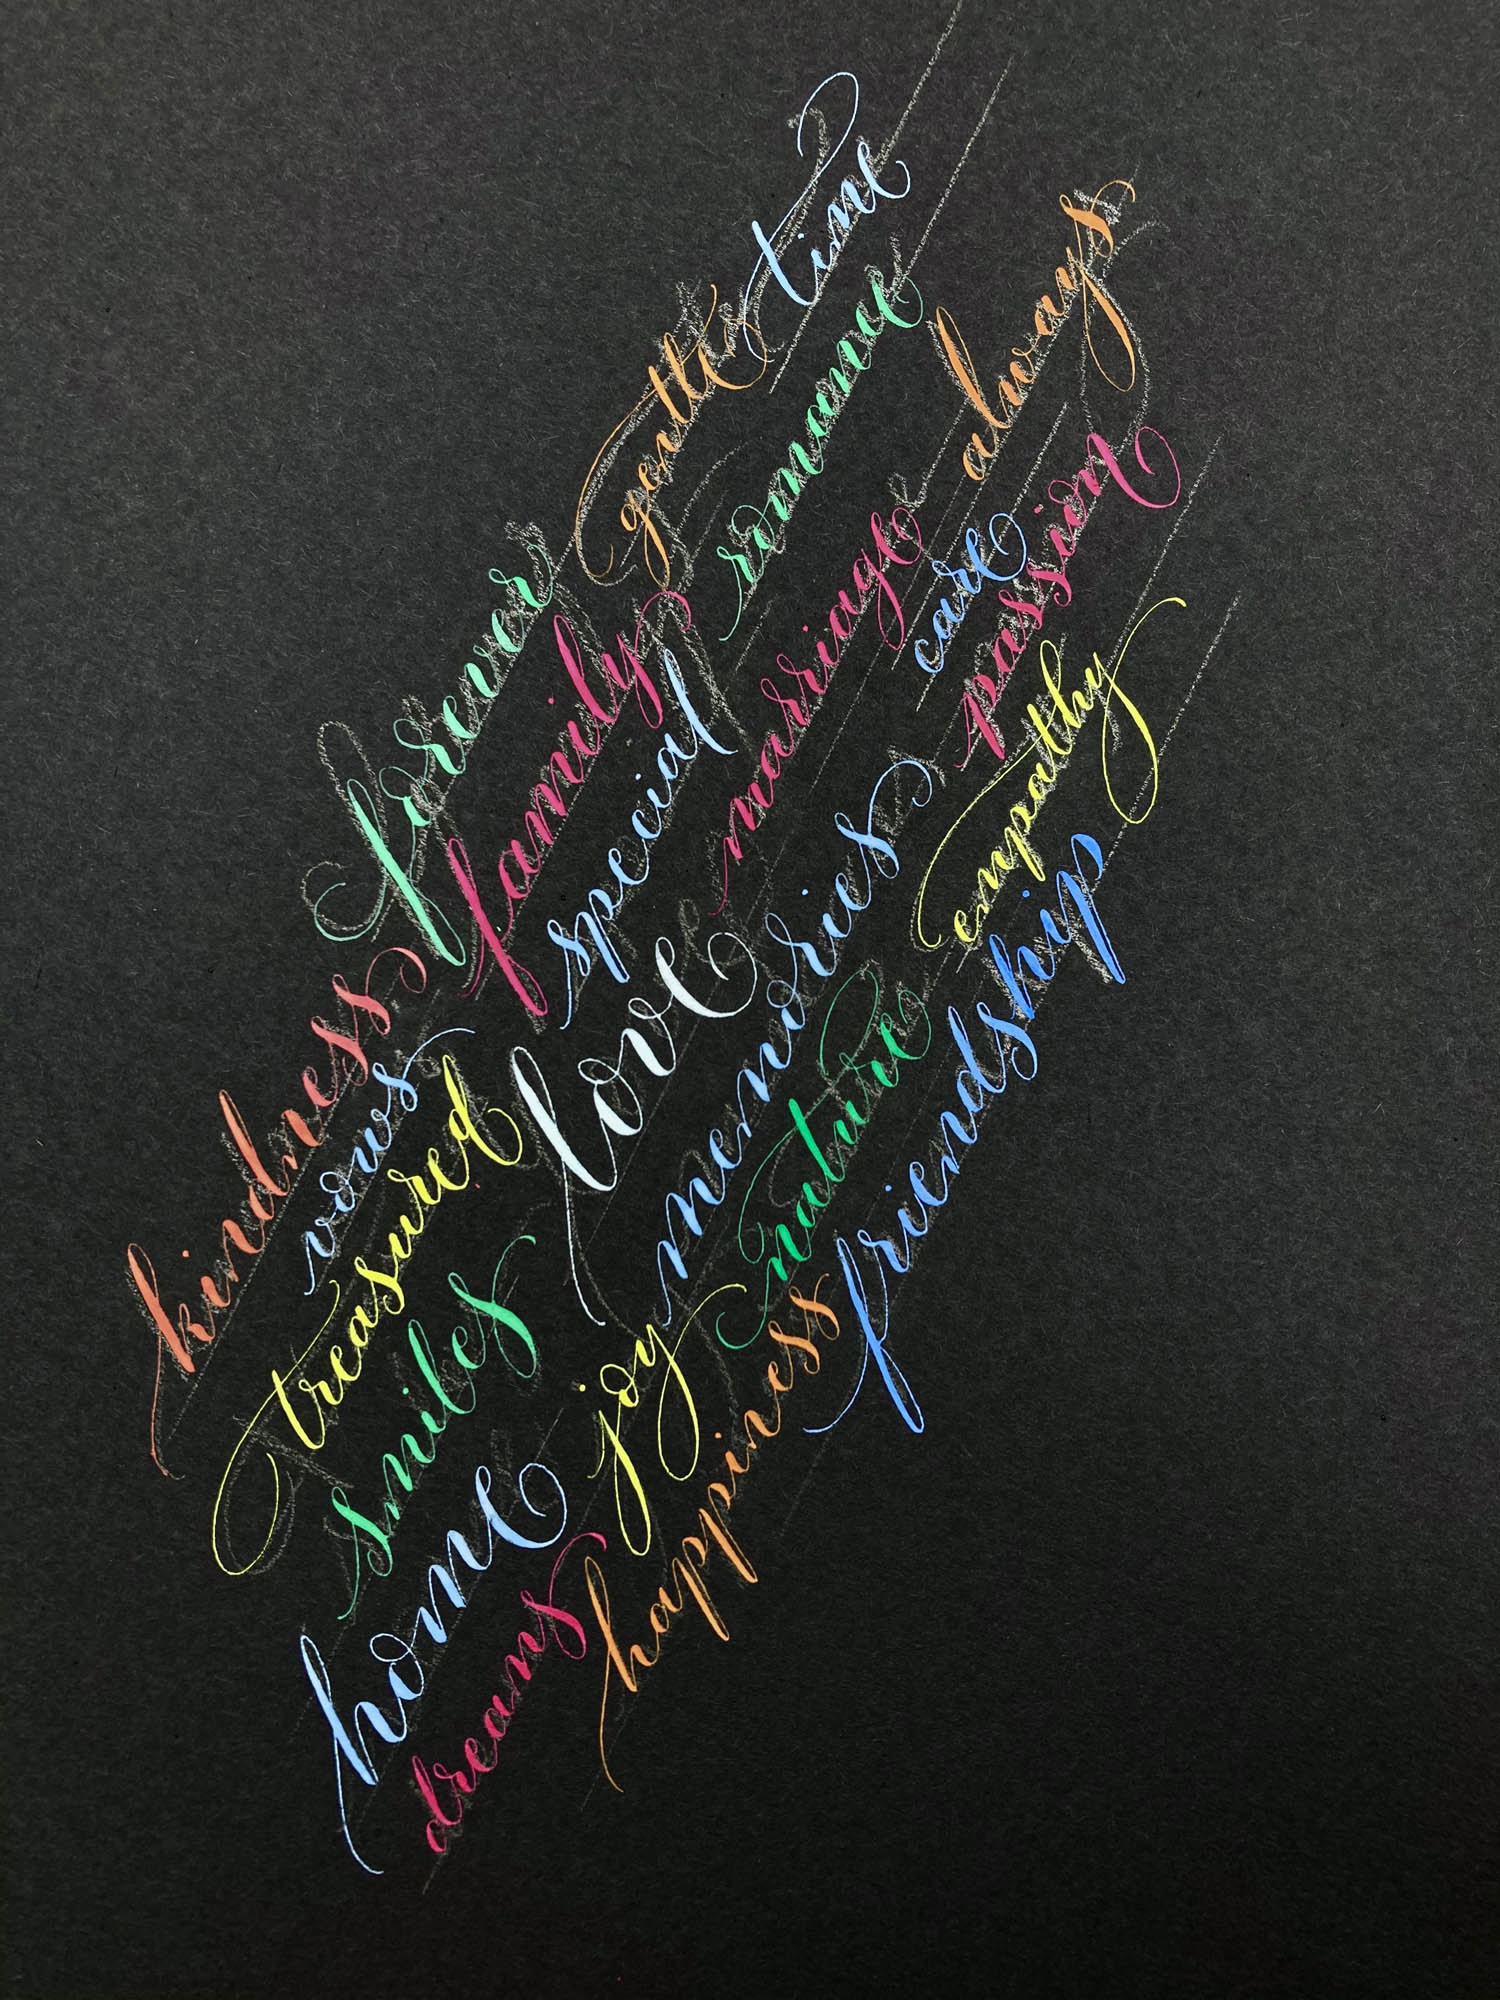 time
gentle
romance
always
forever
family
marriage
care
passion
special
memories
empathy
kindness
vows
love
nature
friendship
treasured
smiles
joy
happiness
home
dreams